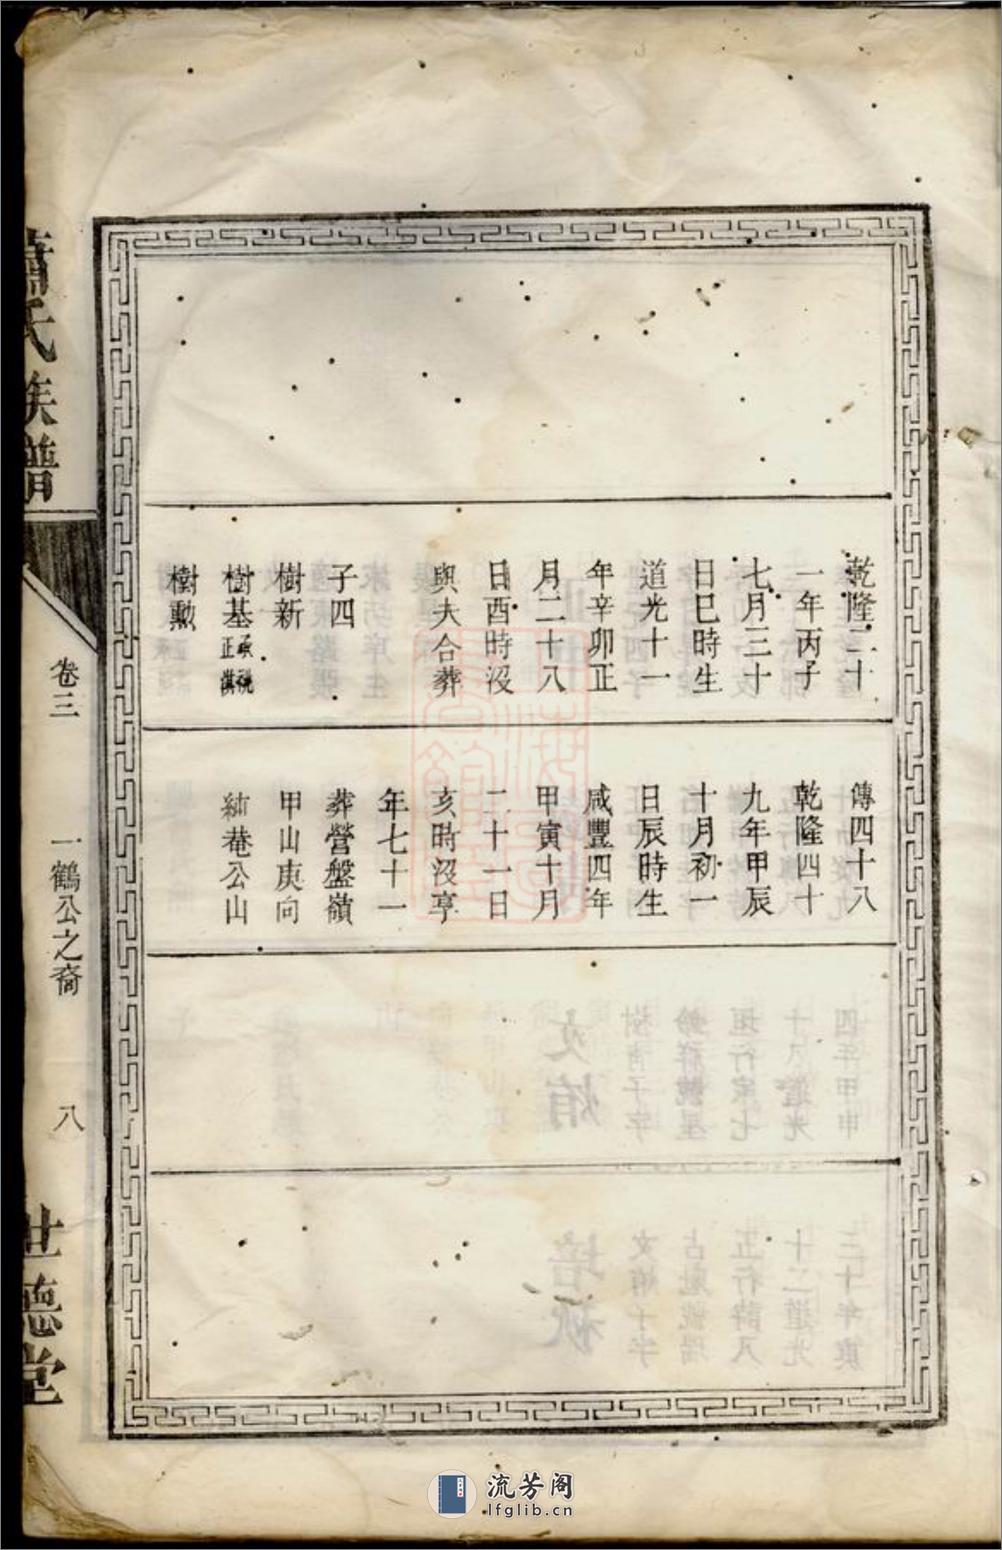 乾隆二十
一年丙子
七月三十
日巳時生
道光十一
年辛卯正
月二十八
日酉時没
與夫合葬
子四
樹新
樹基
樹勳
傳四十八
乾隆四十
九年甲辰
十月初一
日辰時生
咸豐四年
甲寅十月
二十一日
亥時没享
年七十一
葬營盤嶺
甲山庚向
純菴公山
蕭氏族譜
卷三
一鶴公之裔
八
世德堂
流芳阁
lfglib.cn